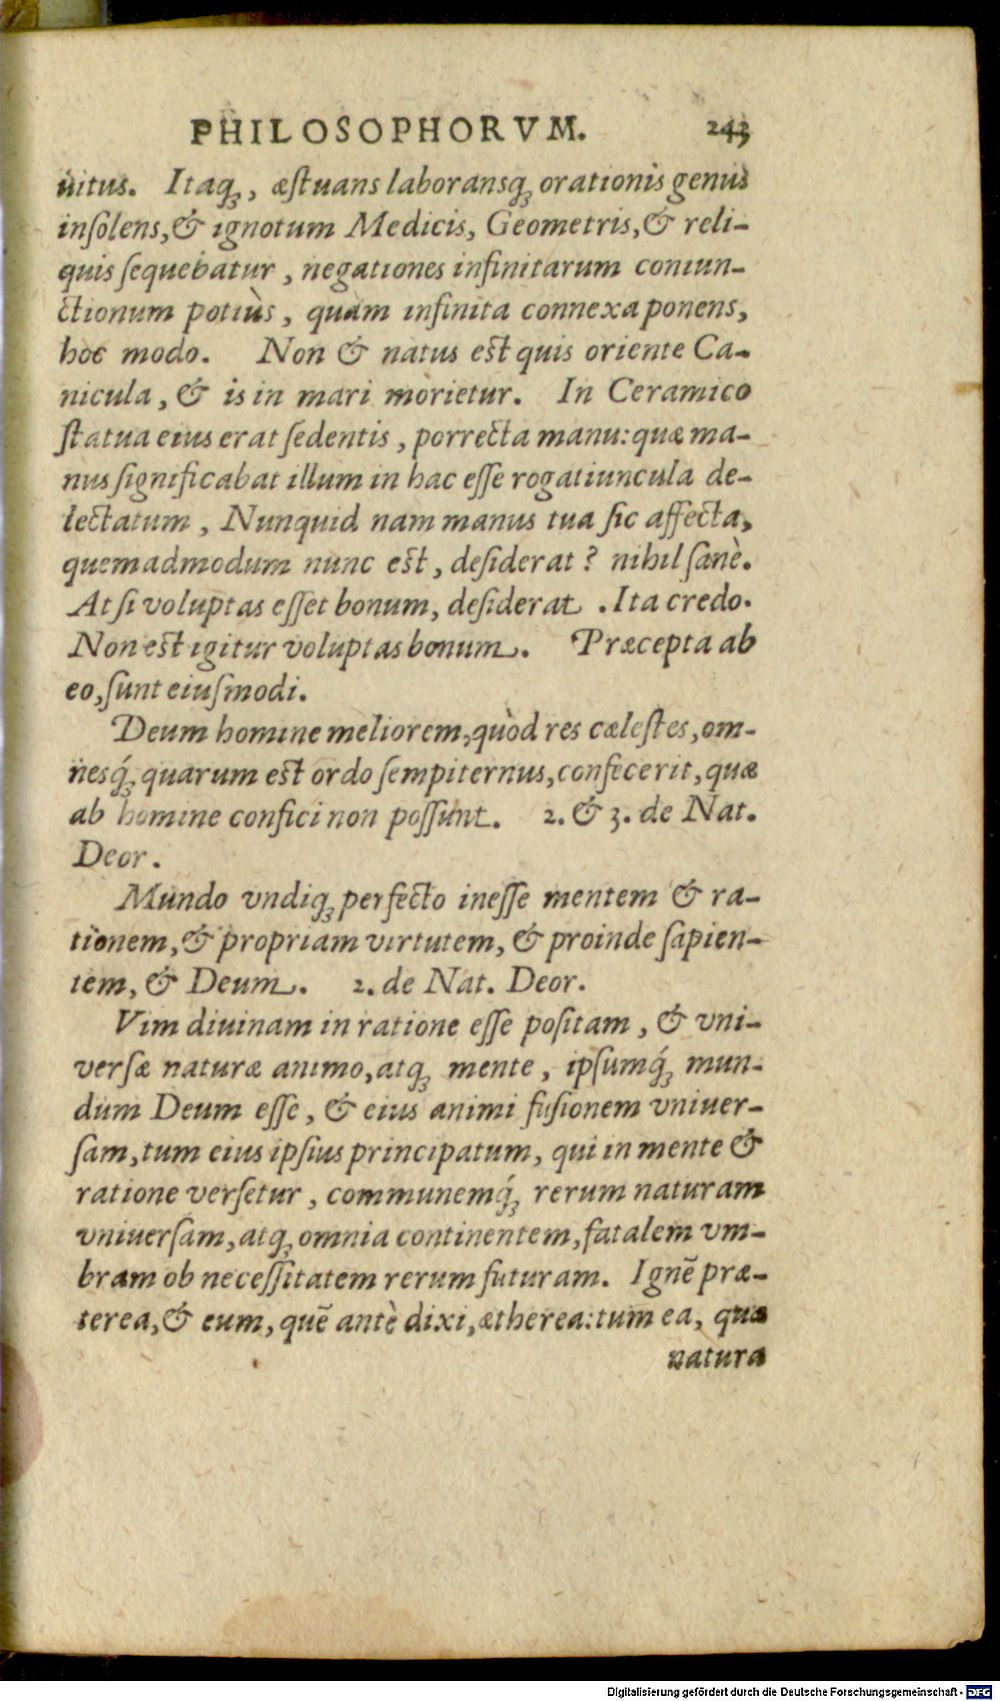 PHILOSOPHORVM. 243
uitus. Itaq́;, æstuans laboransq́; orationis genus
insolens, & ignotum Medicis, Geometris, & reli-
quis sequebatur, negationes infinitarum coniun-
ctionum potiùs, quam infinita connexa ponens,
hoc modo. Non & natus est quis oriente Ca-
nicula, & is in mari morietur. In Ceramico
statua eius erat sedentis, porrecta manu: quæ ma-
nus significabat illum in hac esse rogatiuncula de-
lectatum, Nunquid nam manus tua sic affecta,
quemadmodum nunc est, desiderat? nihil sanè.
At si voluptas esset bonum, desiderat. Ita credo.
Non est igitur voluptas bonum. Præcepta ab
eo, sunt eiusmodi.
Deum homine meliorem, quòd res cælestes, om-
nesq́; quarum est ordo sempiternus, confecerit, quæ
ab homine confici non possunt. 2. & 3. de Nat.
Deor.
Mundo vndiq; perfecto inesse mentem & ra-
tionem, & propriam virtutem, & proinde sapien-
tem, & Deum. 2. de Nat. Deor.
Vim diuinam in ratione esse positam, & vni-
versæ naturæ animo, atq; mente, ipsumq́; mun-
dum Deum esse, & eius animi fusionem vniuer-
sam, tum eius ipsius principatum, qui in mente &
ratione versetur, communemq́; rerum naturam
vniuersam, atq; omnia continentem, fatalem vm-
bram ob necessitatem rerum futuram. Ignē præ-
terea, & eum, quē antè dixi, ætherea: tum ea, quæ
natura
Digitalisierung gefördert durch die Deutsche Forschungsgemeinschaft - DFG